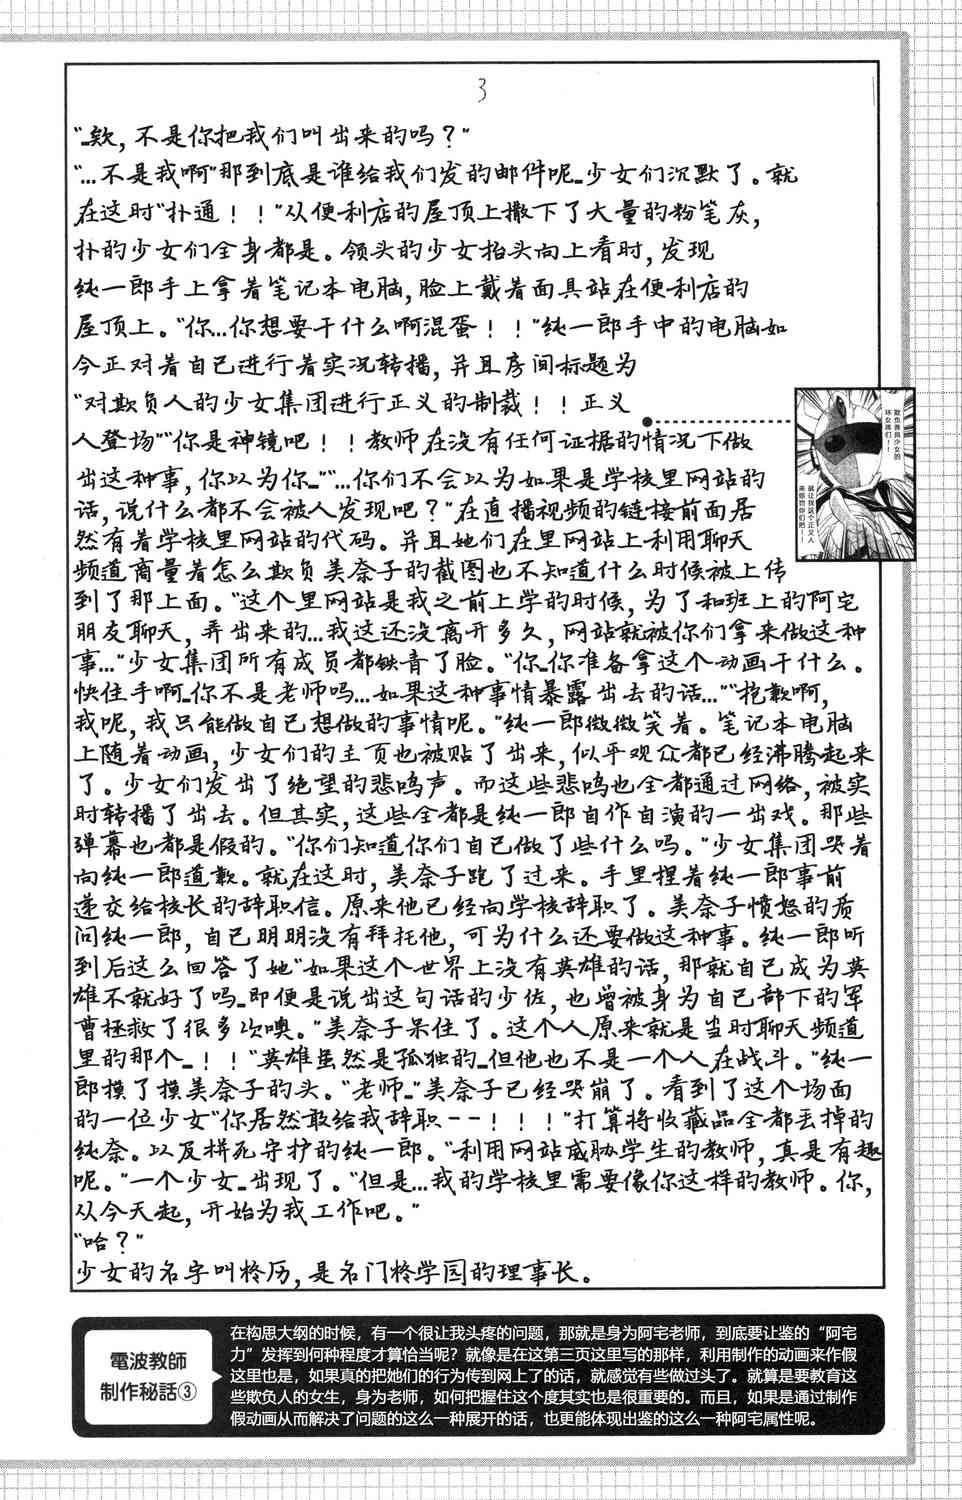 3
“…欸，不是你把我们叫出来的吗？”
“…不是我啊”那到底是谁给我们发的邮件呢…少女们沉默了。就
在这时“扑通！！”从便利店的屋顶上撒下了大量的粉笔灰，
扑的少女们全身都是。领头的少女抬头向上看时，发现
纯一郎手上拿着笔记本电脑，脸上戴着面具站在便利店的
屋顶上。“你…你想要干什么啊混蛋！！”纯一郎手中的电脑如
今正对着自己进行着实况转播，并且房间标题为
“对欺负人的少女集团进行正义的制裁！！正义
人登场”“你是神镜吧！！教师在没有任何证据的情况下做
出这种事，你以为你…”“…你们不会以为如果是学校里网站的
话，说什么都不会被人发现吧？”在直播视频的链接前面居
然有着学校里网站的代码。并且她们在里网站上利用聊天
频道商量着怎么欺负美奈子的截图也不知道什么时候被上传
到了那上面。“这个里网站是我之前上学的时候，为了和班上的阿宅
朋友聊天，弄出来的…我这还没离开多久，网站就被你们拿来做这种
事…”少女集团所有成员都铁青了脸。“你…你准备拿这个动画干什么。
快住手啊…你不是老师吗…如果这种事情暴露出去的话…”“抱歉啊，
我呢，我只能做自己想做的事情呢。”纯一郎微微笑着。笔记本电脑
上随着动画，少女们的主页也被贴了出来，似乎观众都已经沸腾起来
了。少女们发出了绝望的悲鸣声。而这些悲鸣也全都通过网络，被实
时转播了出去。但其实，这些全都是纯一郎自作自演的一出戏。那些
弹幕也都是假的。“你们知道你们自己做了些什么吗。”少女集团哭着
向纯一郎道歉。就在这时，美奈子跑了过来。手里捏着纯一郎事前
递交给校长的辞职信。原来他已经向学校辞职了。美奈子愤怒的质
问纯一郎，自己明明没有拜托他，可为什么还要做这种事。纯一郎听
到后这么回答了她“如果这个世界上没有英雄的话，那就自己成为英
雄不就好了吗…即便是说出这句话的少佐，也曾被身为自己部下的军
曹拯救了很多次噢。”美奈子呆住了。这个人原来就是当时聊天频道
里的那个…！！“英雄虽然是孤独的…但他也不是一个人在战斗。”纯一
郎摸了摸美奈子的头。“老师…”美奈子已经哭崩了。看到了这个场面
的一位少女“你居然敢给我辞职－－！！！”打算将收藏品全都丢掉的
纯奈。以及拼死守护的纯一郎。“利用网站威胁学生的教师，真是有趣
呢。”一个少女…出现了。“但是…我的学校里需要像你这样的教师。你，
从今天起，开始为我工作吧。”
“哈？”
少女的名字叫柊历，是名门柊学园的理事长。
欺负善良少女的
坏女孩们！！
就让我这个正义人
来惩罚你们吧！！
電波教師
制作秘話③
在构思大纲的时候，有一个很让我头疼的问题，那就是身为阿宅老师，到底要让鉴的“阿宅
力”发挥到何种程度才算恰当呢？就像是在这第三页这里写的那样，利用制作的动画来作假
这里也是，如果真的把她们的行为传到网上了的话，就感觉有些做过头了。就算是要教育这
些欺负人的女生，身为老师，如何把握住这个度其实也是很重要的。而且，如果是通过制作
假动画从而解决了问题的这么一种展开的话，也更能体现出鉴的这么一种阿宅属性呢。